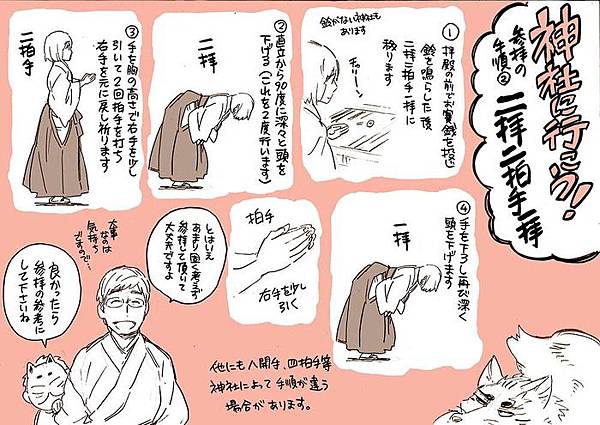 神社に行こう!
参拝の
手順②
二拝二拍手一拝
鈴がない神社も
あります
①
拝殿の前でお賽銭を投じ
鈴を鳴らした後
二拝二拍手一拝に
移ります
チャリーン
②
直立から90度に深々と頭を
下げる(これを2度行います)
二拝
③
手を胸の高さで右手を少し
引いて2回拍手を打ち
右手を元に戻し祈ります
二拍手
④
手を下ろし再び深く
頭を下げます
一拝
拍手
右手を少し
引く
とはいえ
あまり固く考えず
参拝して頂いて
大丈夫ですよ
大事
なのは
気持ち
ですので…
良かったら
参拝の参考に
して下さいね
他にも八開手、四拍手等
神社によって手順が違う
場合があります。